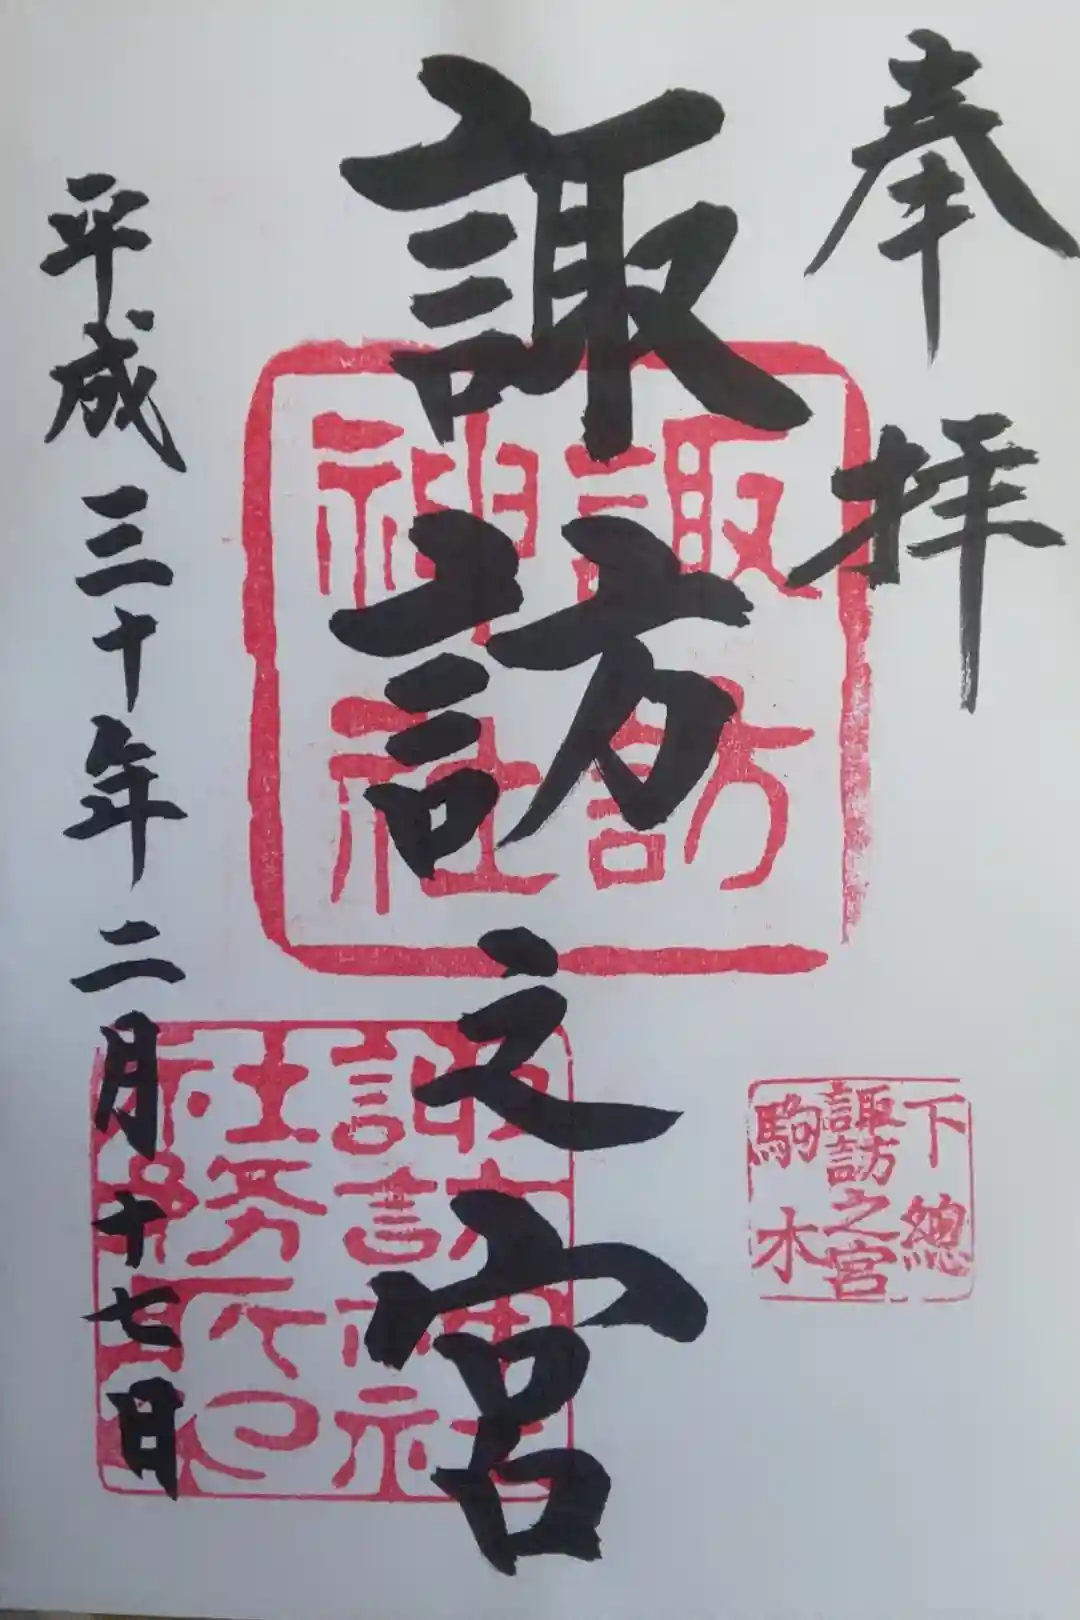 奉拝
諏訪之宮
平成三十年二月十七日
諏訪
神社
下總
諏訪之宮
駒木
諏訪神社
社務所